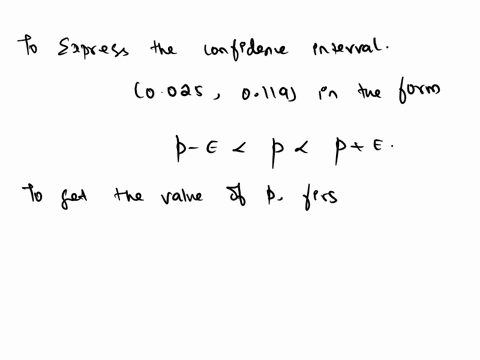 To Express the confidence interval.
(0.025, 0.119) in the form
p - ϵ < p < p + ϵ.
To get the value of p, firs